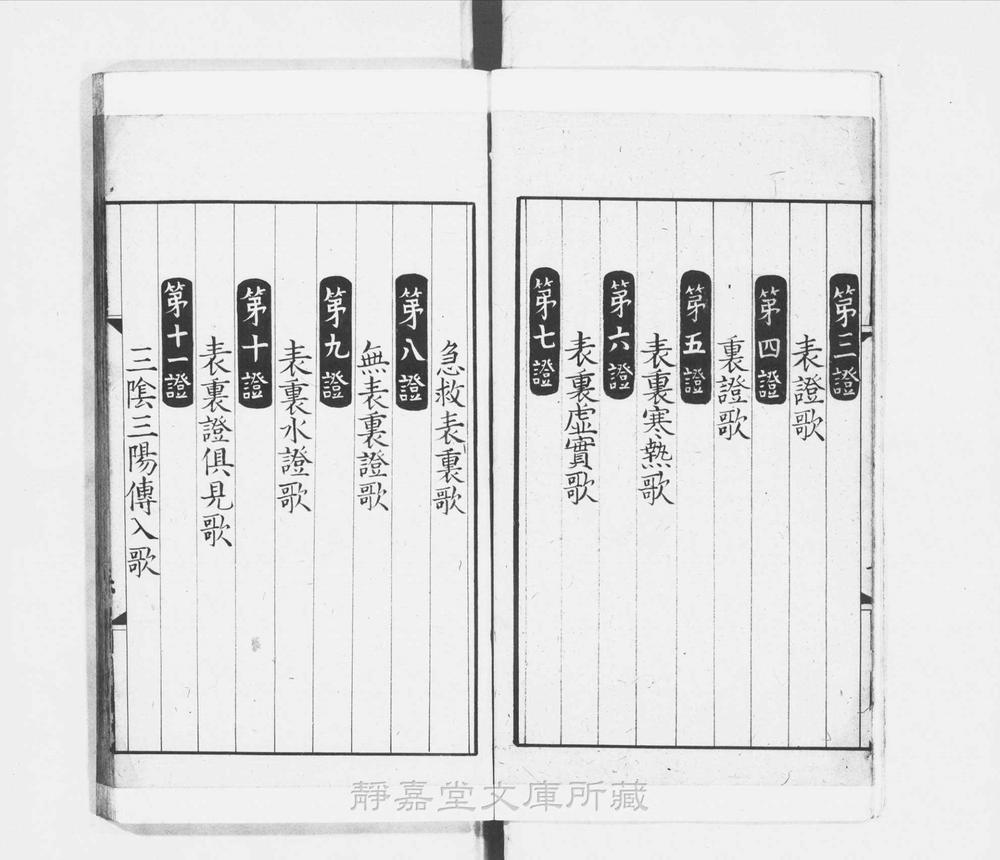 第三證
表證歌
第四證
裏證歌
第五證
表裏寒熱歌
第六證
表裏虛實歌
第七證
急救表裏歌
第八證
無表裏證歌
第九證
表裏水證歌
第十證
表裏證俱見歌
第十一證
三陰三陽傳入歌
靜嘉堂文庫所藏